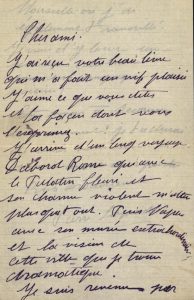 Cher ami.
J'ai reçu votre beau livre
qui m'a fait un vif plaisir
J'aime ce que vous dites
et la façon dont vous
l'exprimez
J'arrive d'un long voyage
D'abord Rome qui avec
le Palatin fleuri et
son charme violent m'a
plus que tout. Puis Naples
avec son musée extraordinaire
et la vision de
cette ville que je trouve
dramatique.
Je suis revenue par